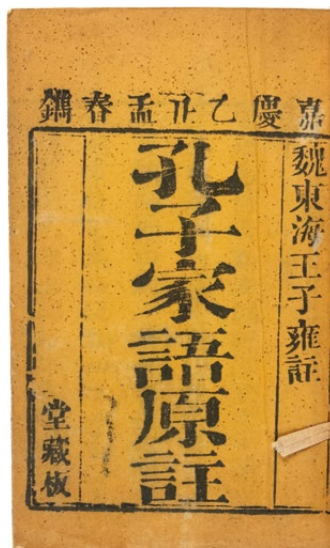 嘉慶乙丑孟春鐫
魏東海王子雍註
孔子家語原註
堂藏板